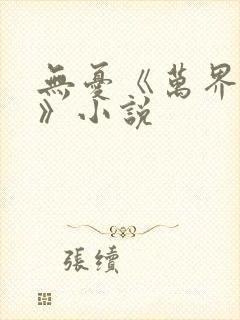 無憂《萬界
》小說
張續